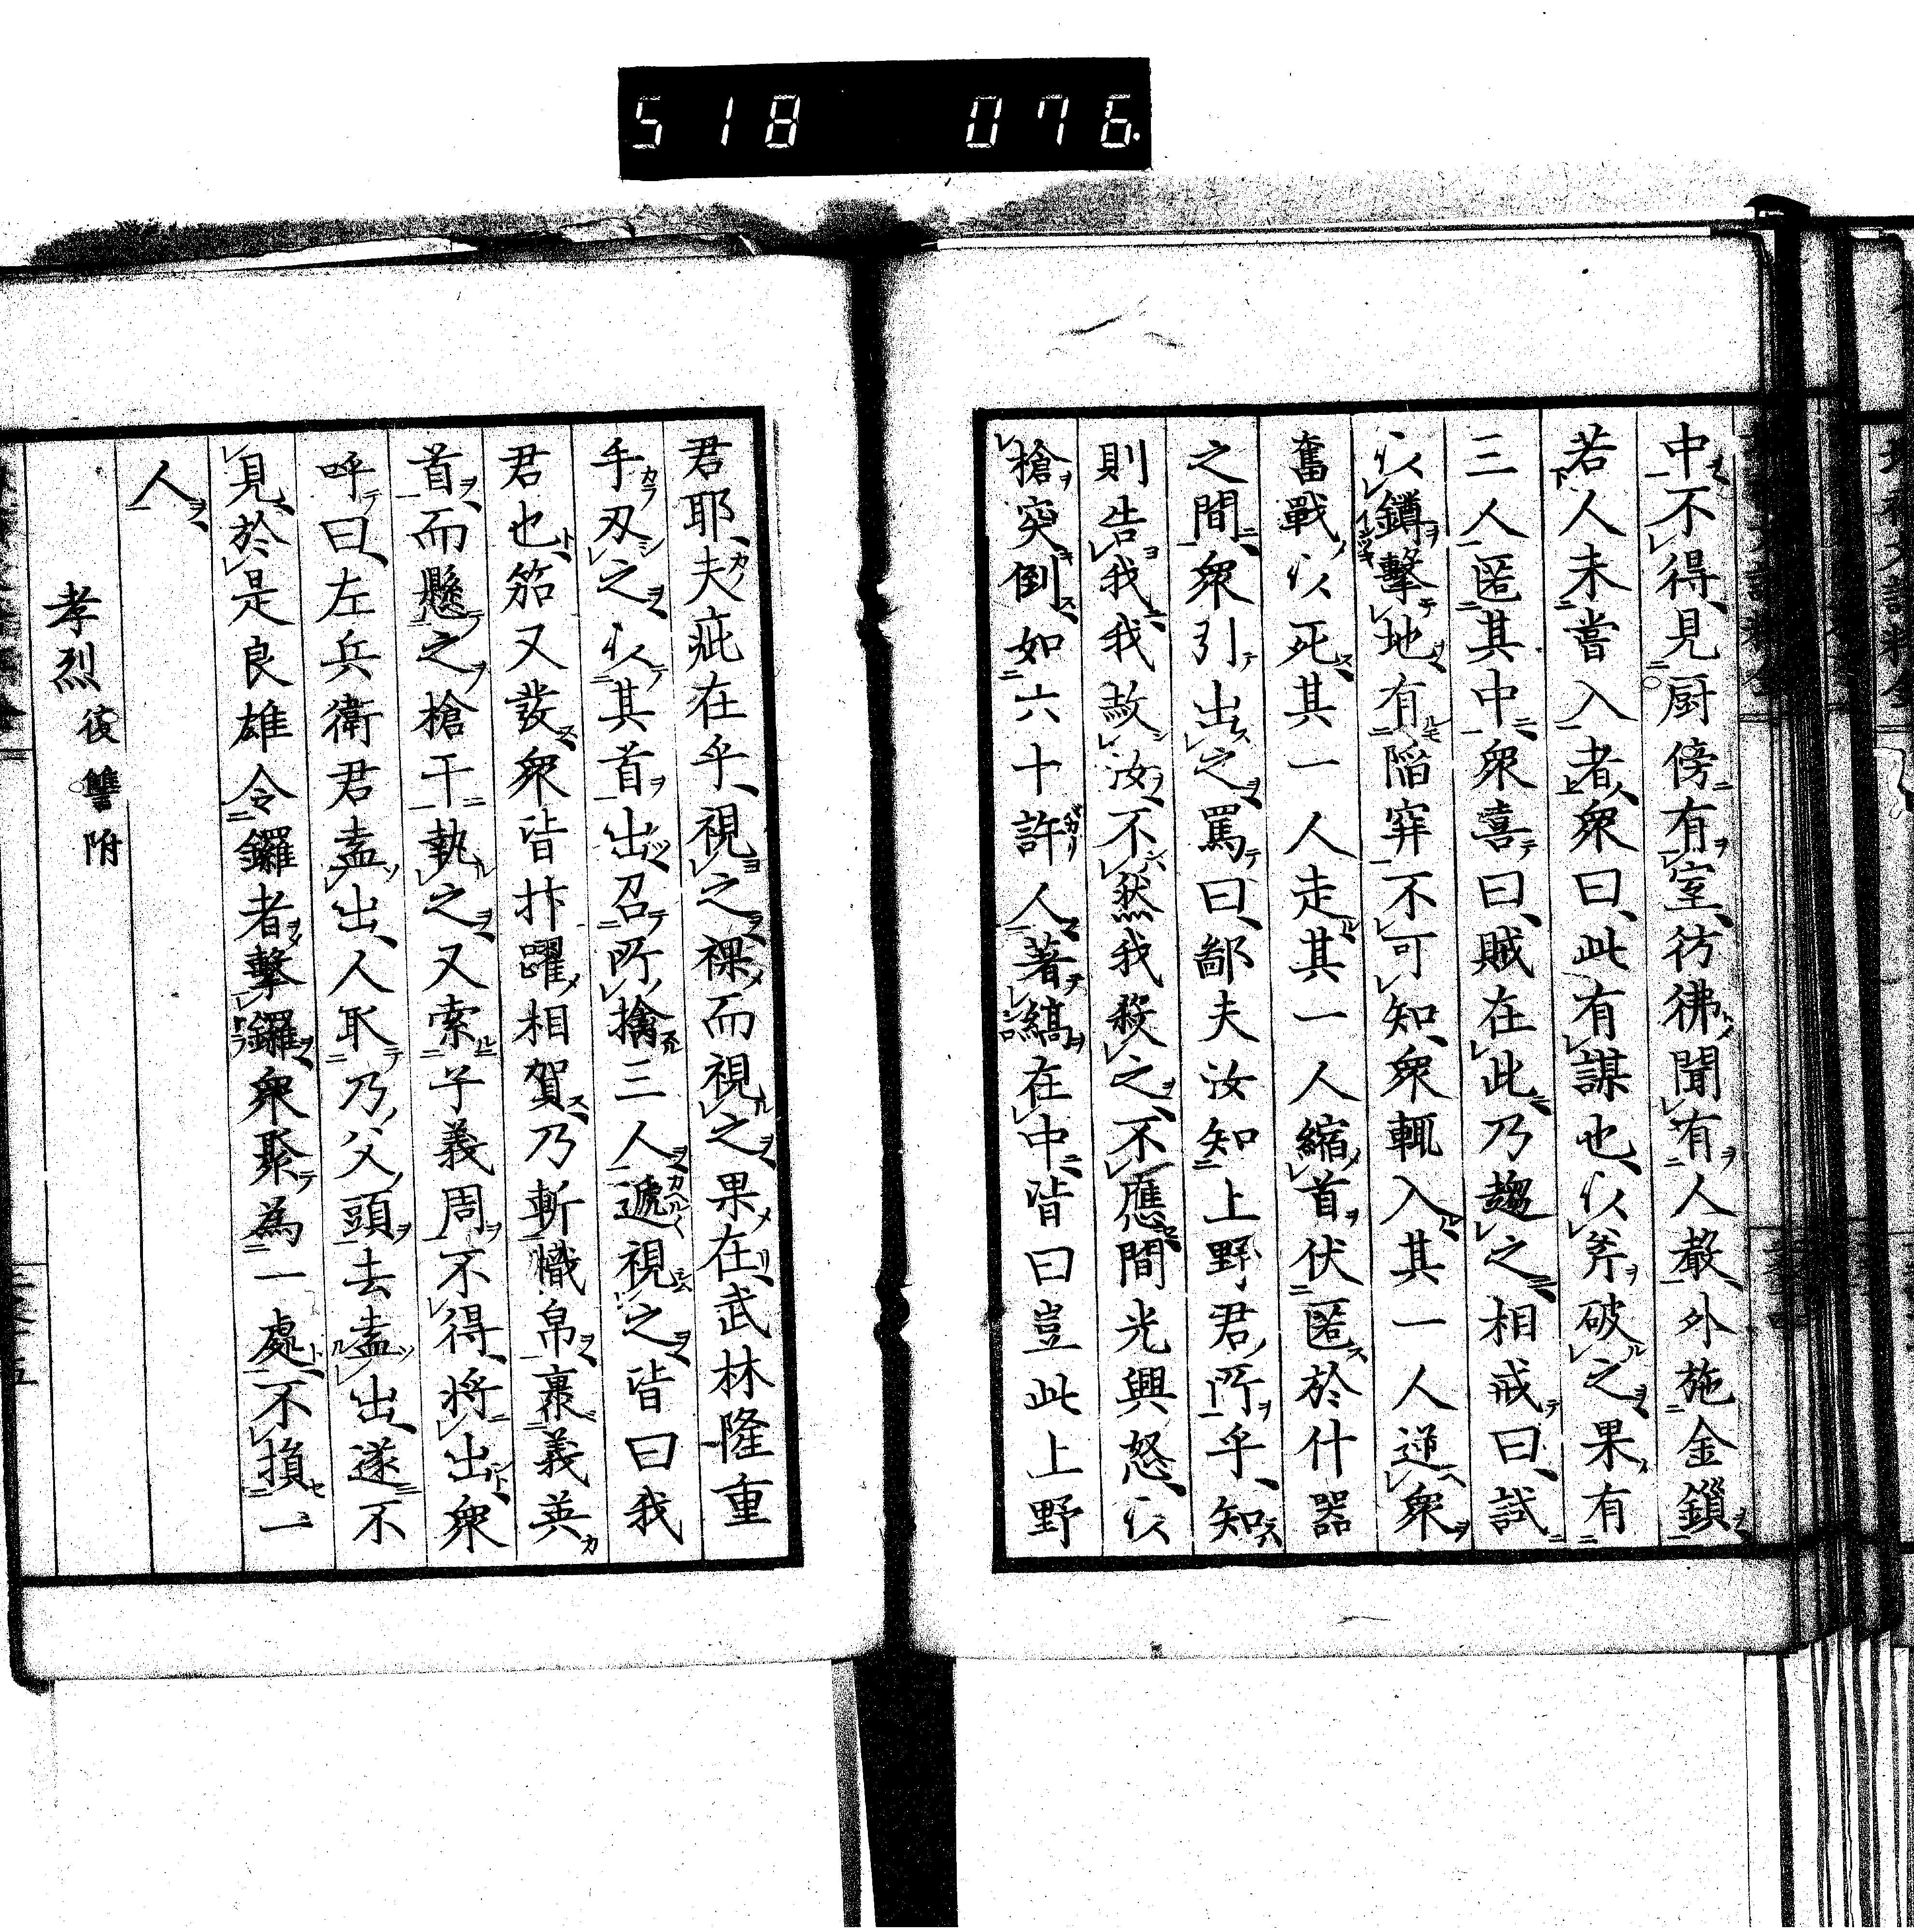 518 076.
中不得見厨傍有室彷彿聞有人聲外施金鎖
若人未嘗入者衆曰此有謀也以斧破之果有
三人匿其中衆喜曰賊在此乃趨之相戒曰試
以鐏擊地有陥穽不可知衆輒入其一人逆衆
奮戰以死其一人走其一人縮首伏匿於什器
之間衆引出之罵曰鄙夫汝知上野君所乎知
則告我我赦汝不然我殺之不應間光興怒以
槍突倒如六十許人著縞在中皆曰豈此上野
君耶夫疵在乎視之裸而視之果在武林隆重
手刃之以其首出召所擒三人遞視之皆曰我
君也笳又發衆皆抃躍相賀乃斬幟帛裹義英
首而懸之槍干執之又索子義周不得将出衆
呼曰左兵衛君盍出人取乃父頭去盍出遂不
見於是良雄令鑼者擊鑼衆聚為一處不損一
人
孝烈 復讐附